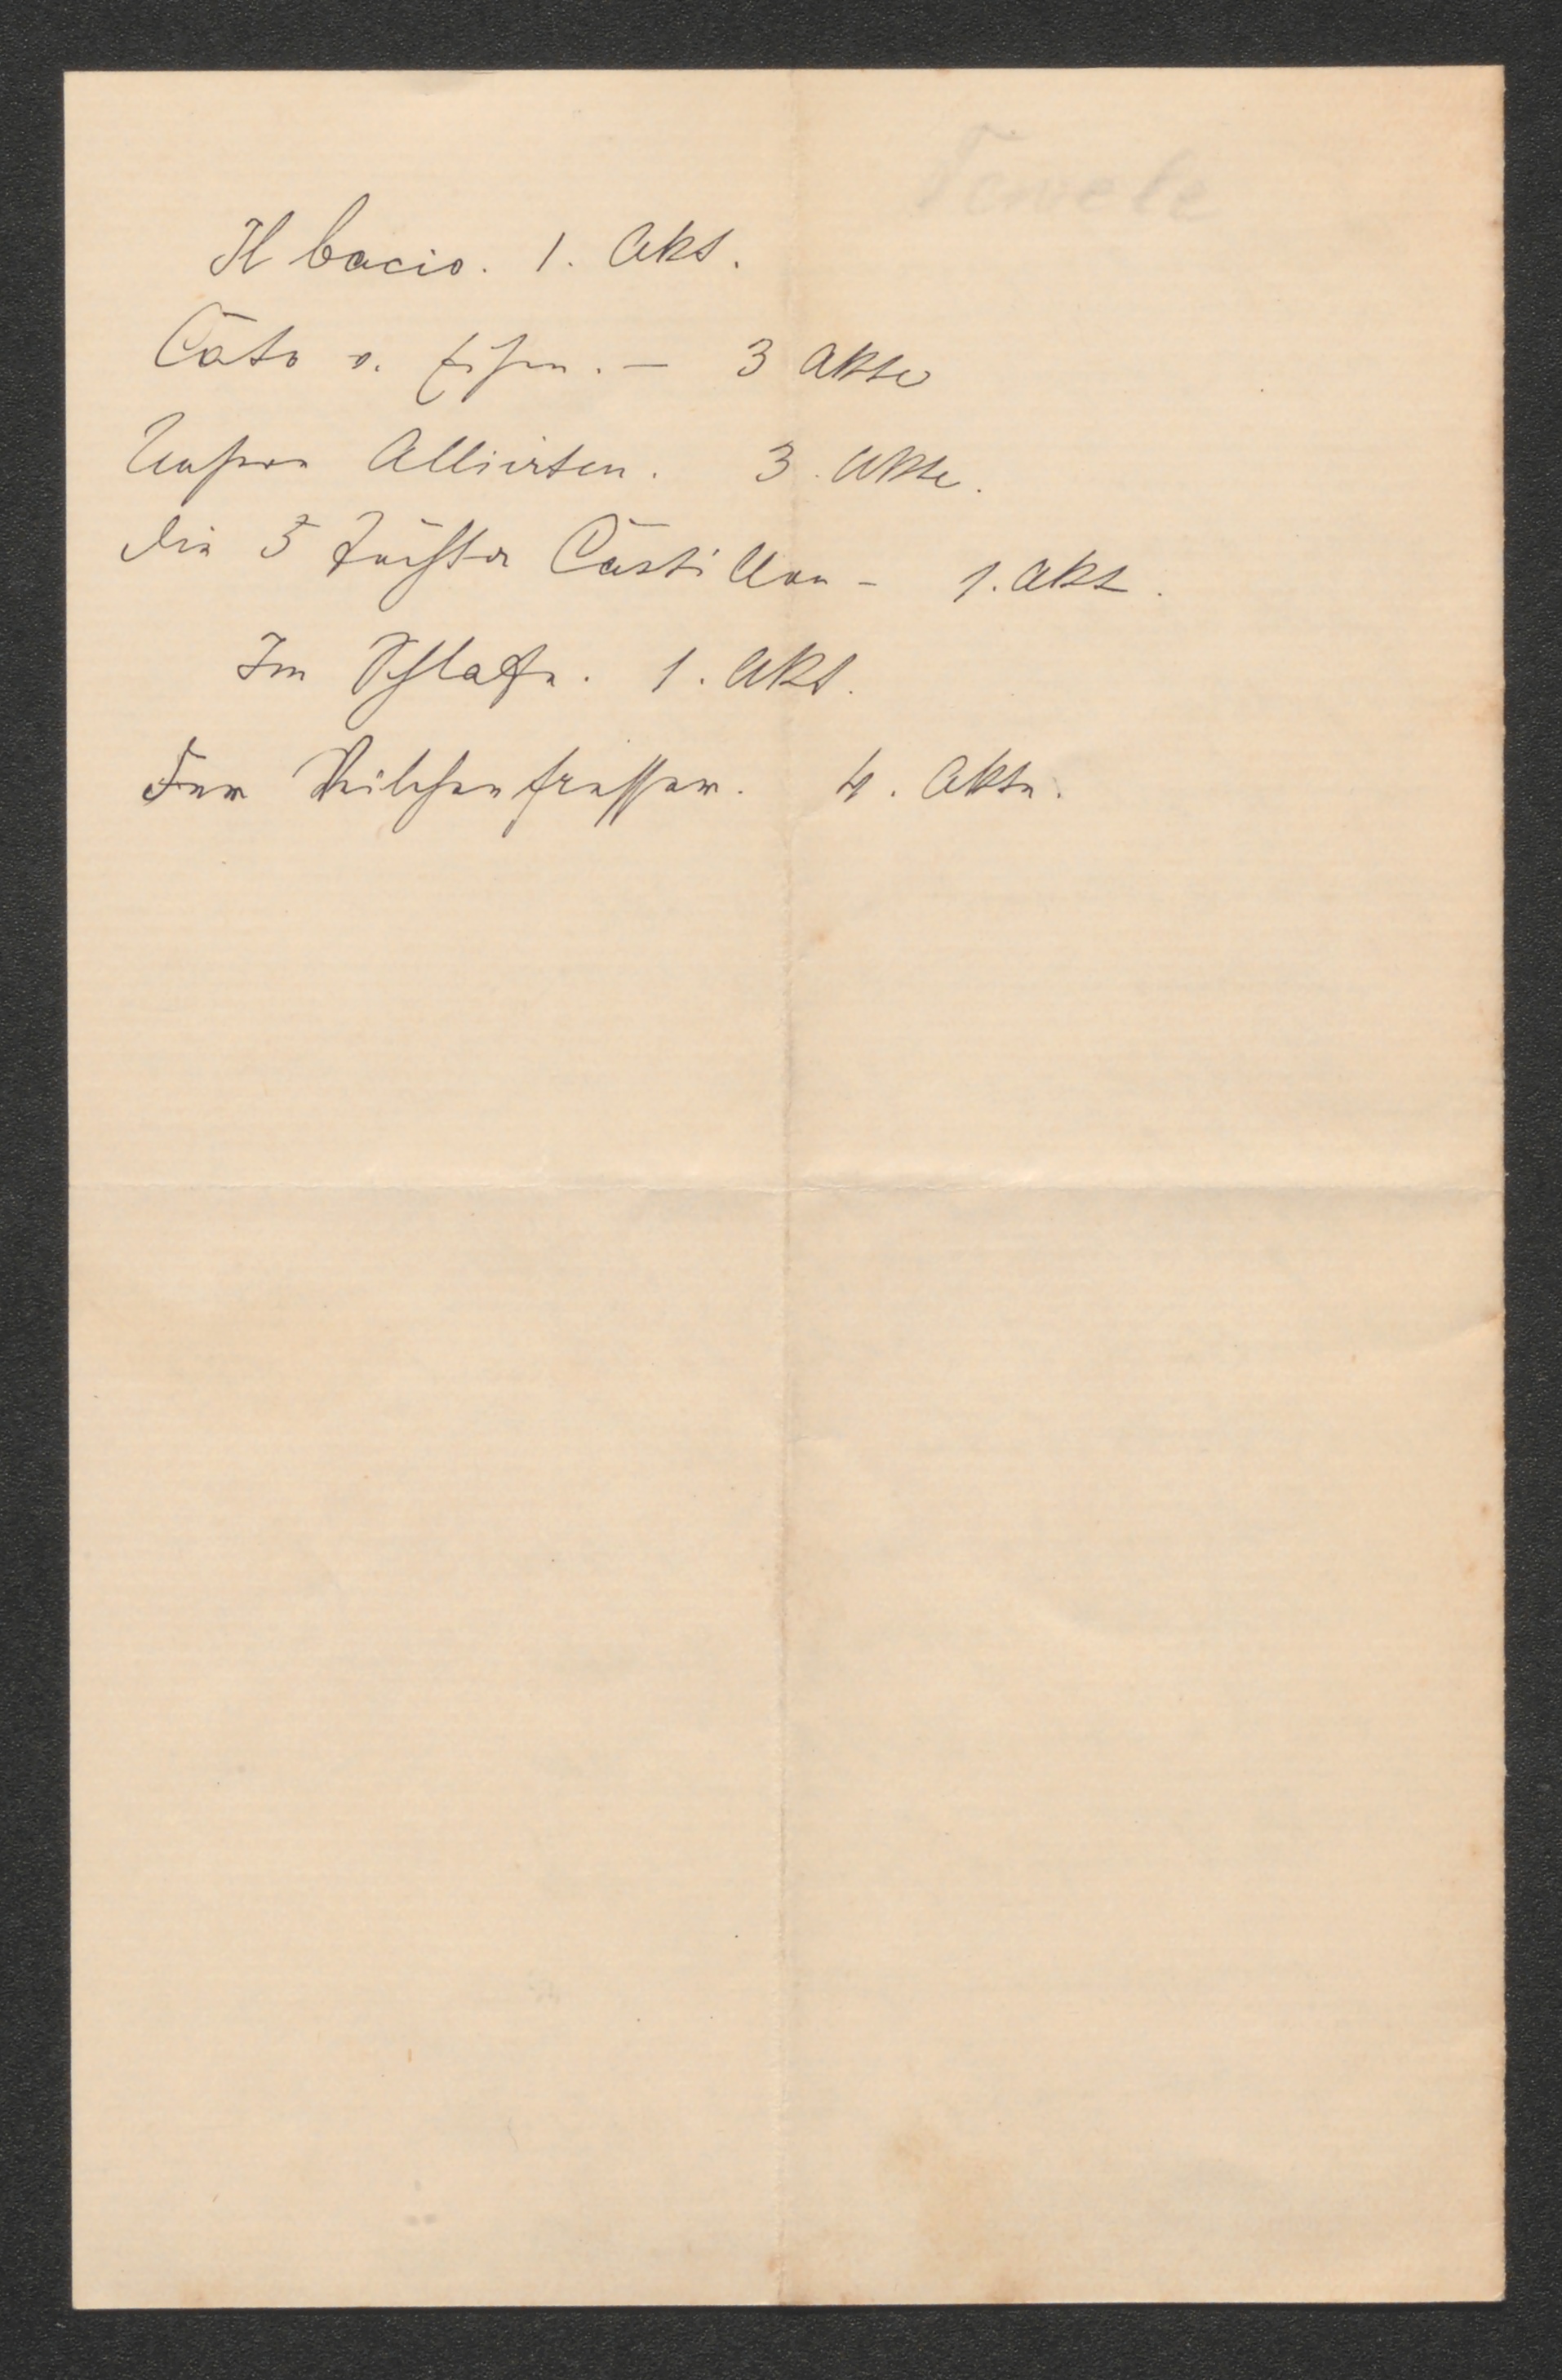 Tewele
Il bacio. 1. Akt.
Cato v. Eisen. — 3 Akte
Unsere Alliirten. 3. Akte.
Die 5 Töchter Castillon - 1. Akt.
Im Schlafe. 1. Akt.
Der Veilchenfresser. 4. Akte.